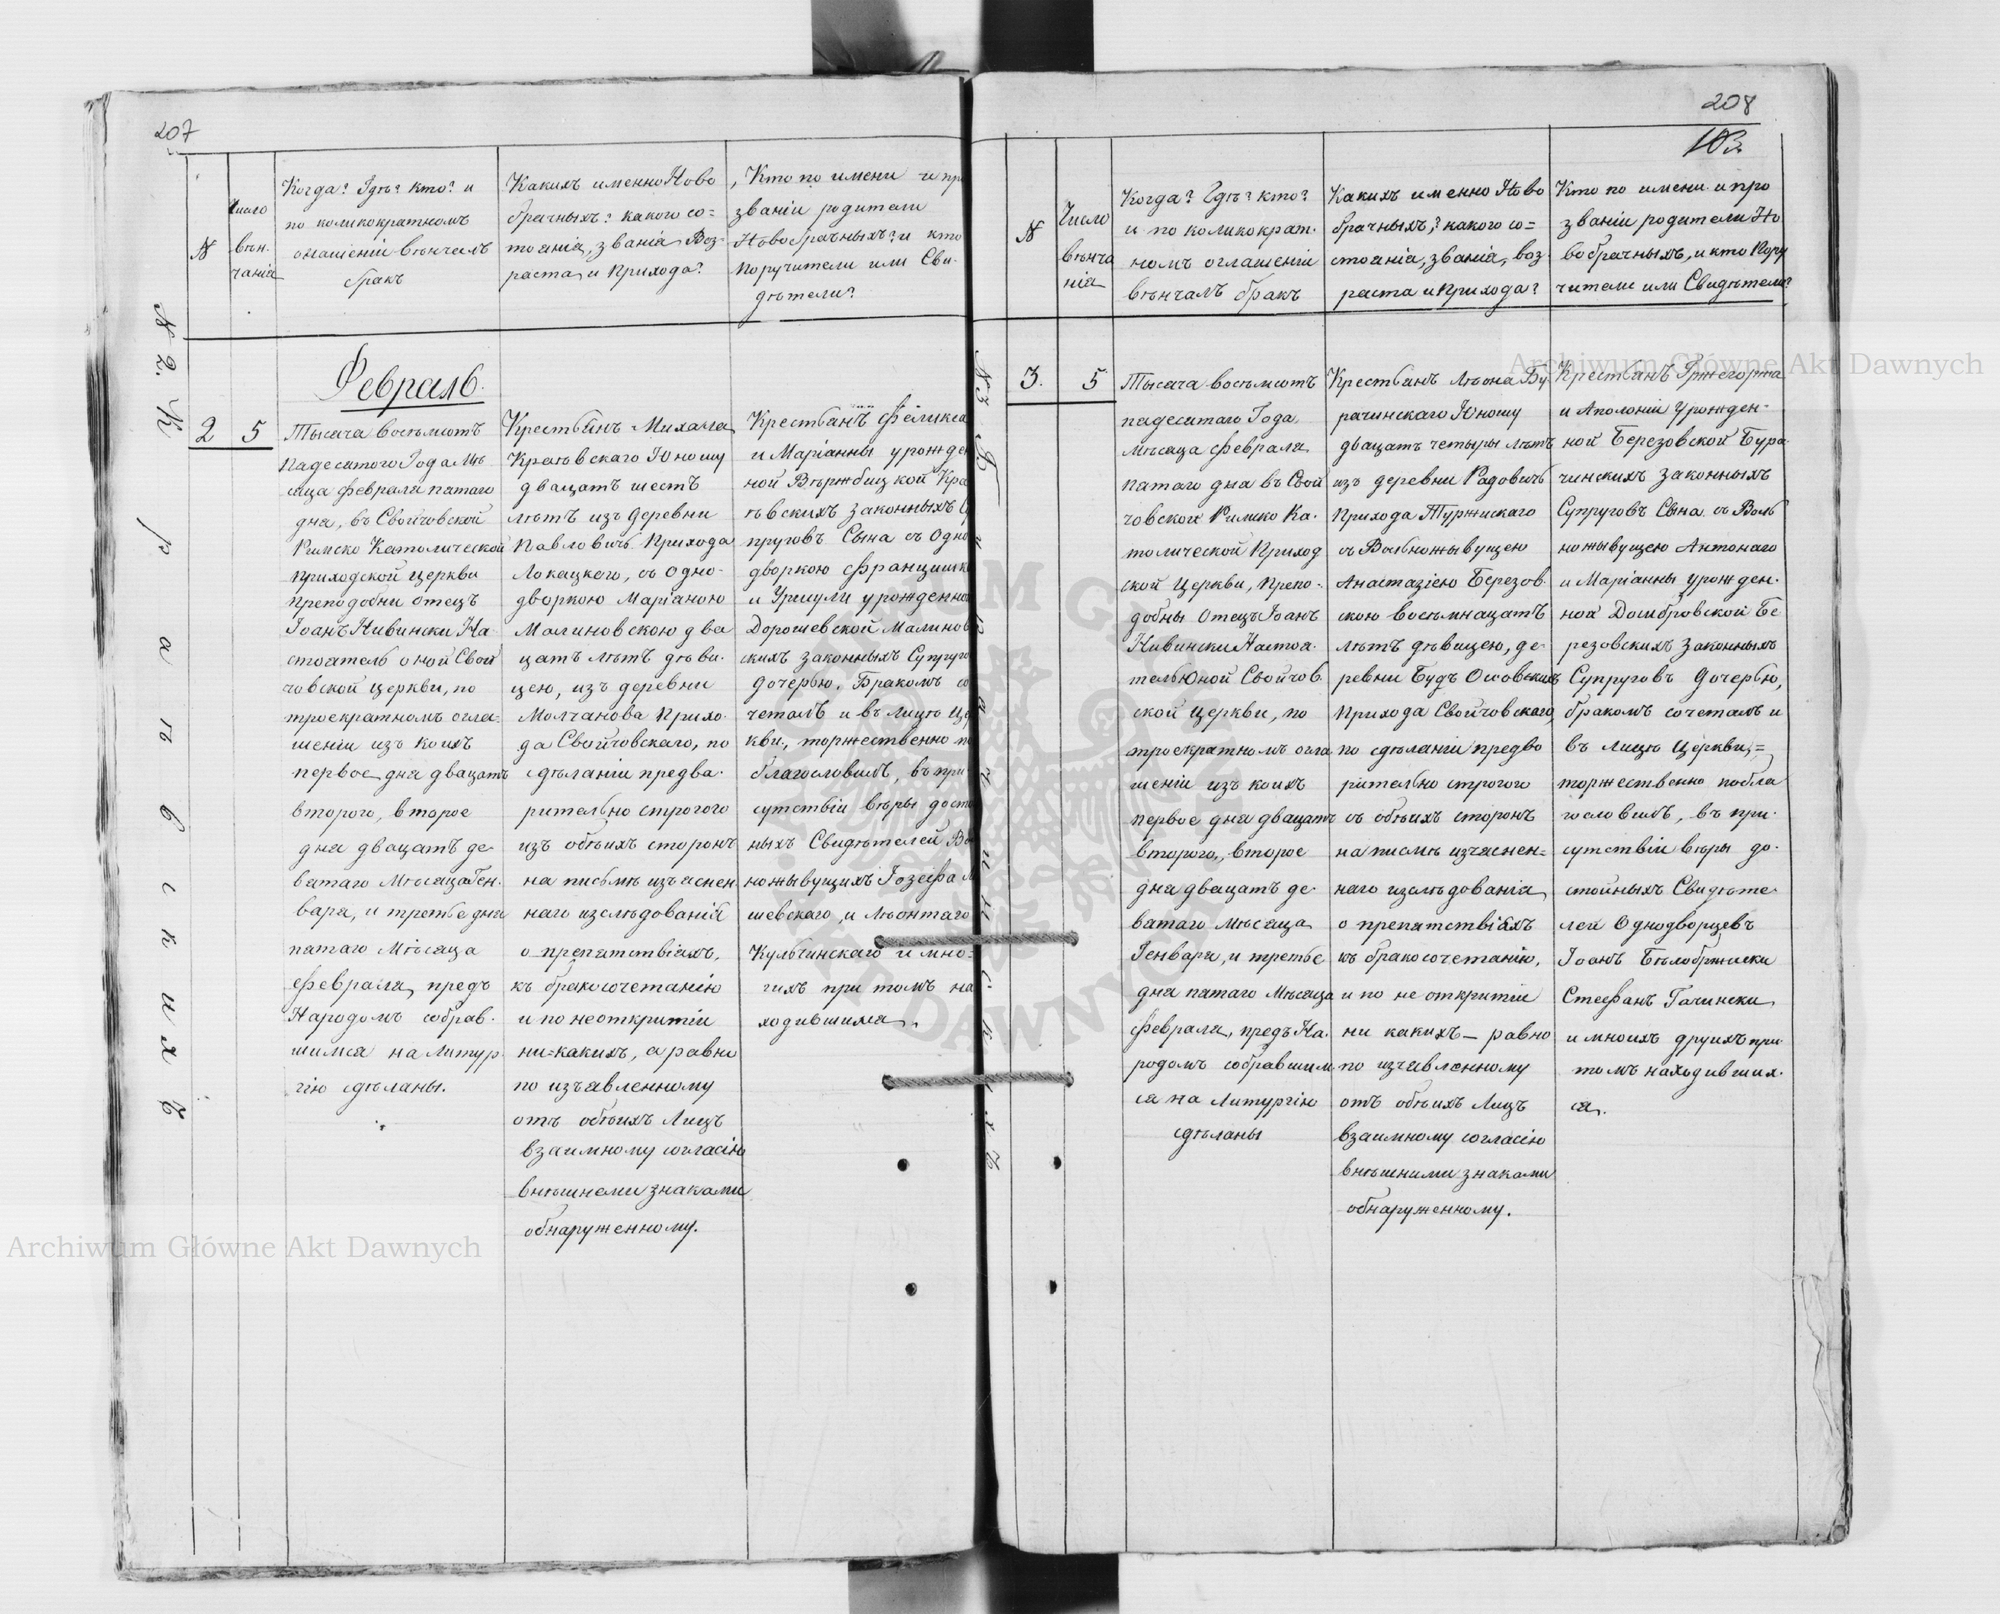 207
N
Число
вѣн-
чанія
Когда? Гдѣ? кто? и
по коликократномъ
оглашеніи вѣнчалъ
бракъ
Какихъ именно Ново
брачныхъ? какого со=
тоянія, званія, Воз-
раста и Прихода?
Кто по имени и про
званіи родители
Новобрачныхъ? и кто
поручители или Сви-
дѣтели?
N 2.
Февраль.
2
5
Тысяча восьмотъ
Падесятого Года Мѣ
сяца февраля пятаго
дня, въ Свойчовской
Римско Католической
приходской церкви
преподобни отецъ
Іоанъ Нивински На-
стоятель оной Свой
човской церкви, по
троекратномъ огла-
шеніи изъ коихъ
первое дня двацатъ
второго, второе
дня двацатъ де
вятаго Мѣсяца Ген.
варя, и третье дня
пятаго Мѣсяца
февраля, предъ
Народомъ собрав-
шимся на Литур
гію сдѣланы.
Крестьянъ Михала
Краѣвскаго Юношу
двацатъ шесть
лѣтъ изъ деревни
Павловичъ Прихода
Локацкого, съ одно-
дворкою Маріаною
Малиновскою два
цатъ лѣтъ дѣви-
цею, изъ деревни
Молчанова Прихо-
да Свойчовскаго, по
сдѣланіи предва-
рительно строгого
изъ обѣихъ сторонъ
на письмѣ изъяснен
наго изслѣдованія
о препятствіяхъ,
къ бракосочетанію
и по неоткритіи
ни-какихъ, а равно
по изъявленному
отъ обѣихъ Лицъ
взаимному согласію
внѣшнеми знаками
обнаруженному.
Крестьянъ Феликса
и Маріанны урожден
ной Вѣржбицкой Кра
ѣвскихъ законныхъ Су
пруговъ Сына съ Одно
дворкою Францишка
и Уршули урожденной
Дорошевской Малинов
скихъ законныхъ Супруго
дочерью. Бракомъ со
четалъ и въ лицѣ Це
кви, торжественно по
благословилъ, въ при
сутствіи вѣры досто
ныхъ Свидѣтелей Во
ножывущихъ Іозефа
шевскаго, и Лѣонтаго
Кульчинскаго и мно=
гихъ при томъ на
ходившихся.
208
103
N
Число
вѣнча
нія
Когда? Гдѣ? кто?
и по коликократ-
номъ оглашеніи
вѣнчалъ бракъ
Какихъ именно Ново
брачныхъ,? какого со=
стоянія, званія, воз
раста и Прихода?
Кто по имени и про
званіи родители Но
вобрачныхъ, и кто Пору
чители или Свидѣтели?
N 3
3.
5
Тысяча восьмотъ
падесятаго Года,
Мѣсяца февраля
пятаго дня въ Свой
човской Римско Ка-
толической Приход
ской Церкви, Препо-
добны Отецъ Іоанъ
Нивински Настоя-
тель Юной Свойчов
ской церкви, по
троекратномъ огла
шеніи изъ коихъ
первое дня двацатъ
второго, второе
дня двацатъ де-
вятаго Мѣсяца
Генваря, и третье
дня пятаго Мѣсяца
февраля, предъ На-
родомъ собравшим
ся на Литургію
сдѣланы
Крестьянъ Лѣона Бу
рачинскаго Юношу
двацатъ четыры лѣтъ
изъ деревни Радовичъ
Прихода Туржискаго
съ Вольножывущею
Анастазіею Березов-
скою восьмнацатъ
лѣтъ дѣвицею, де-
ревни Будъ Осовскихъ
Прихода Свойчовскаго,
по сдѣланіи предво
рительно строгого
съ обѣихъ сторонъ
на писмѣ изъяснен=
наго изслѣдованія
о препятствіяхъ
къ бракосочетанію,
и по не открытіи
ни какихъ — равно
по изъявленному
отъ обѣихъ Лицъ
взаимному согласію
внѣшними знаками
обнаруженному.
Крестьянъ Гржегоржа
и Аполоніи Урожден-
ной Березовской Бура
чинскихъ законныхъ
Супруговъ Сына съ Воль
ножывущею Антонаго
и Маріанны урожден-
ной Домбровской Бе
резовскихъ законныхъ
Супруговъ Дочерью,
бракомъ сочеталъ и
въ лицѣ Церкви,=
торжественно побла
гословилъ, въ при-
сутствіи вѣры до-
стойныхъ Свидѣте-
лей Однодворцевъ
Іоанъ Бѣлобржиски
Стефанъ Гачински
и многихъ другихъ при
томъ находивших-
ся.
Archiwum Główne Akt Dawnych
Archiwum Główne Akt Dawnych